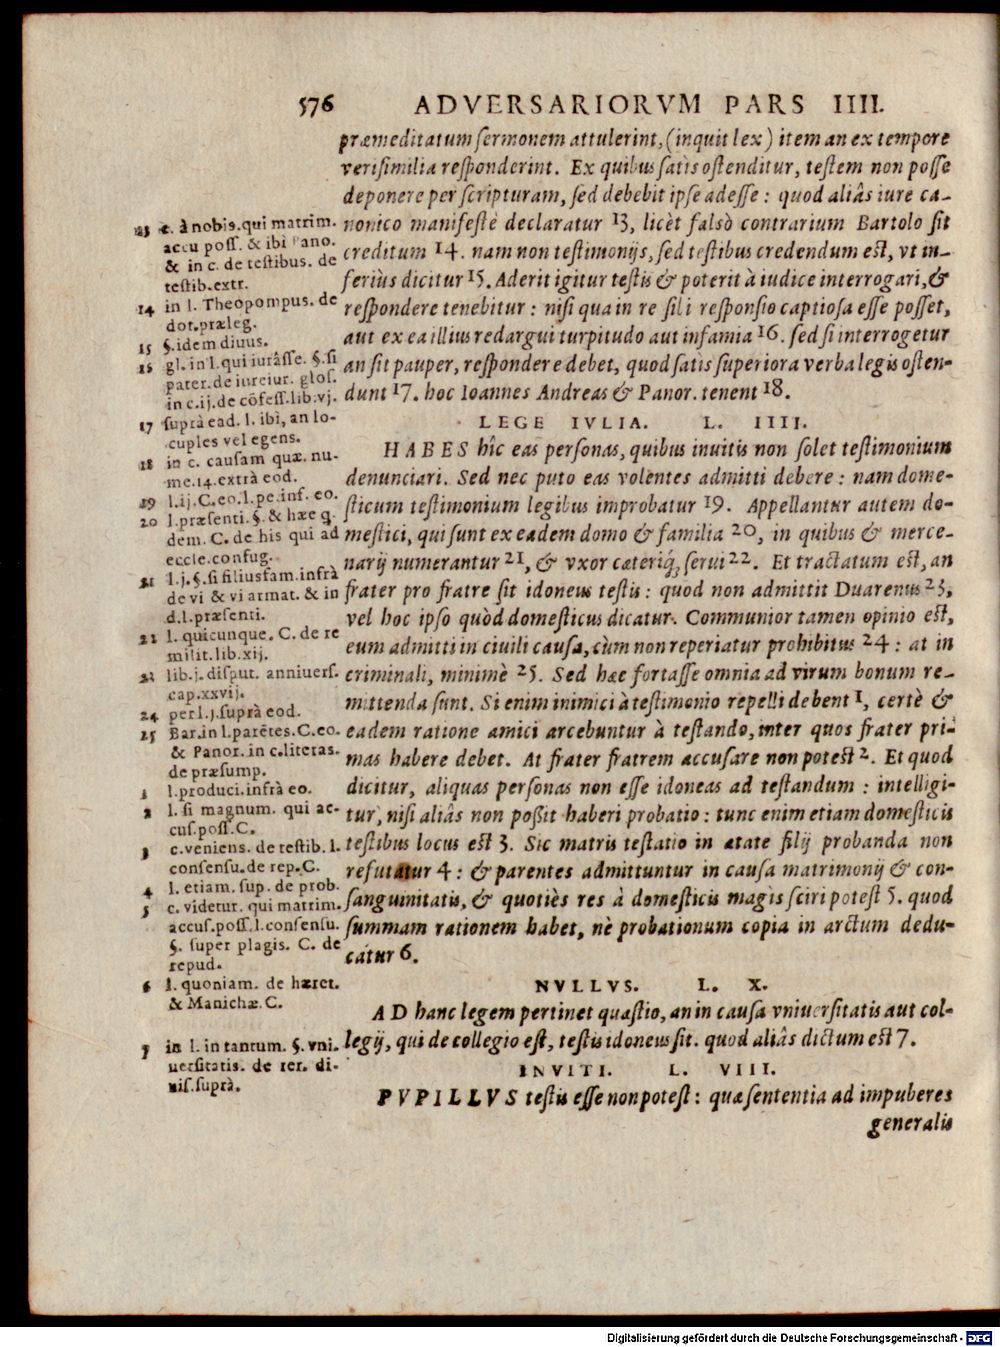 576 ADVERSARIORVM PARS IIII.
præmeditatum ſermonem attulerint, (inquit lex) item an ex tempore
veriſimilia reſponderint. Ex quibus ſatis oſtenditur, teſtem non poſſe
deponere per ſcripturam, ſed debebit ipſe adeſſe : quod aliâs iure ca-
nonico manifeſtè declaratur 13, licèt falsò contrarium Bartolo ſit
creditum 14. nam non teſtimonijs, ſed teſtibus credendum eſt, vt in-
feriùs dicitur 15. Aderit igitur teſtis & poterit à iudice interrogari, &
reſpondere tenebitur : niſi qua in re ſili reſponſio captioſa eſſe poſſet,
aut ex ea illius redargui turpitudo aut infamia 16. ſed ſi interrogetur
an ſit pauper, reſpondere debet, quod ſatis ſuperiora verba legis oſten-
dunt 17. hoc Ioannes Andreas & Panor. tenent 18.
LEGE IVLIA. L. IIII.
HABES hîc eas perſonas, quibus inuitis non ſolet teſtimonium
denunciari. Sed nec puto eas volentes admitti debere : nam dome-
ſticum teſtimonium legibus improbatur 19. Appellantur autem do-
meſtici, qui ſunt ex eadem domo & familia 20, in quibus & merce-
narij numerantur 21, & vxor cæteriq́; ſerui 22. Et tractatum eſt, an
frater pro fratre ſit idoneus teſtis : quod non admittit Duarenus 23,
vel hoc ipſo quòd domeſticus dicatur. Communior tamen opinio eſt,
eum admitti in ciuili cauſa, cùm non reperiatur prohibitus 24 : at in
criminali, minimè 25. Sed hæc fortaſſe omnia ad virum bonum re-
mittenda ſunt. Si enim inimici à teſtimonio repelli debent 1, certè &
eadem ratione amici arcebuntur à teſtando, inter quos frater pri-
mas habere debet. At frater fratrem accuſare non poteſt 2. Et quod
dicitur, aliquas perſonas non eſſe idoneas ad teſtandum : intelligi-
tur, niſi aliâs non poßit haberi probatio : tunc enim etiam domeſticis
teſtibus locus eſt 3. Sic matris teſtatio in ætate filij probanda non
refutatur 4 : & parentes admittuntur in cauſa matrimonij & con-
ſanguinitatis, & quotiès res à domeſticis magis ſciri poteſt 5. quod
ſummam rationem habet, nè probationum copia in arctum dedu-
catur 6.
NVLLVS. L. X.
AD hanc legem pertinet quæſtio, an in cauſa vniuerſitatis aut col-
legij, qui de collegio eſt, teſtis idoneus ſit. quod aliâs dictum eſt 7.
INVITI. L. VIII.
PVPILLVS teſtis eſſe non poteſt : quæ ſententia ad impuberes
generalis
13 c. à nobis. qui matrim.
accu poſſ. & ibi Pano.
& in c. de teſtibus. de
teſtib. extr.
14 in l. Theopompus. de
dot. præleg.
15 §. idem diuus.
16 gl. in l. qui iurâſſe. §. ſi
pater. de iureiur. gloſ.
in c. ij. de cōfeſſ. lib. vj.
17 ſuprà ead. l. ibi, an lo-
cuples vel egens.
18 in c. cauſam quæ. nu-
me. 14. extrà eod.
19 l. ij. C. eo. l. pe. inf. eo.
20 l. præſenti. §. & hæc q.
dem. C. de his qui ad
eccle. confug.
21 l. j. §. ſi filiusfam. infrà
de vi & vi armat. & in
d. l. præſenti.
22 l. quicunque. C. de re
milit. lib. xij.
23 lib. j. diſput. anniuerſ.
cap. xxvij.
24 per l. j. ſuprà eod.
25 Bar. in l. parētes. C. eo.
& Panor. in c. literas.
de præſump.
1 l. produci. infrà eo.
2 l. ſi magnum. qui ac-
cuſ. poſſ. C.
3 c. veniens. de teſtib. l.
conſenſu. de rep. C.
4 l. etiam. ſup. de prob.
5 c. videtur. qui matrim.
accuſ. poſſ. l. conſenſu.
§. ſuper plagis. C. de
repud.
6 l. quoniam. de hæret.
& Manichæ. C.
7 in l. in tantum. §. vni-
uerſitatis. de rer. di-
uiſ. ſuprà.
Digitalisierung gefördert durch die Deutsche Forschungsgemeinschaft - DFG